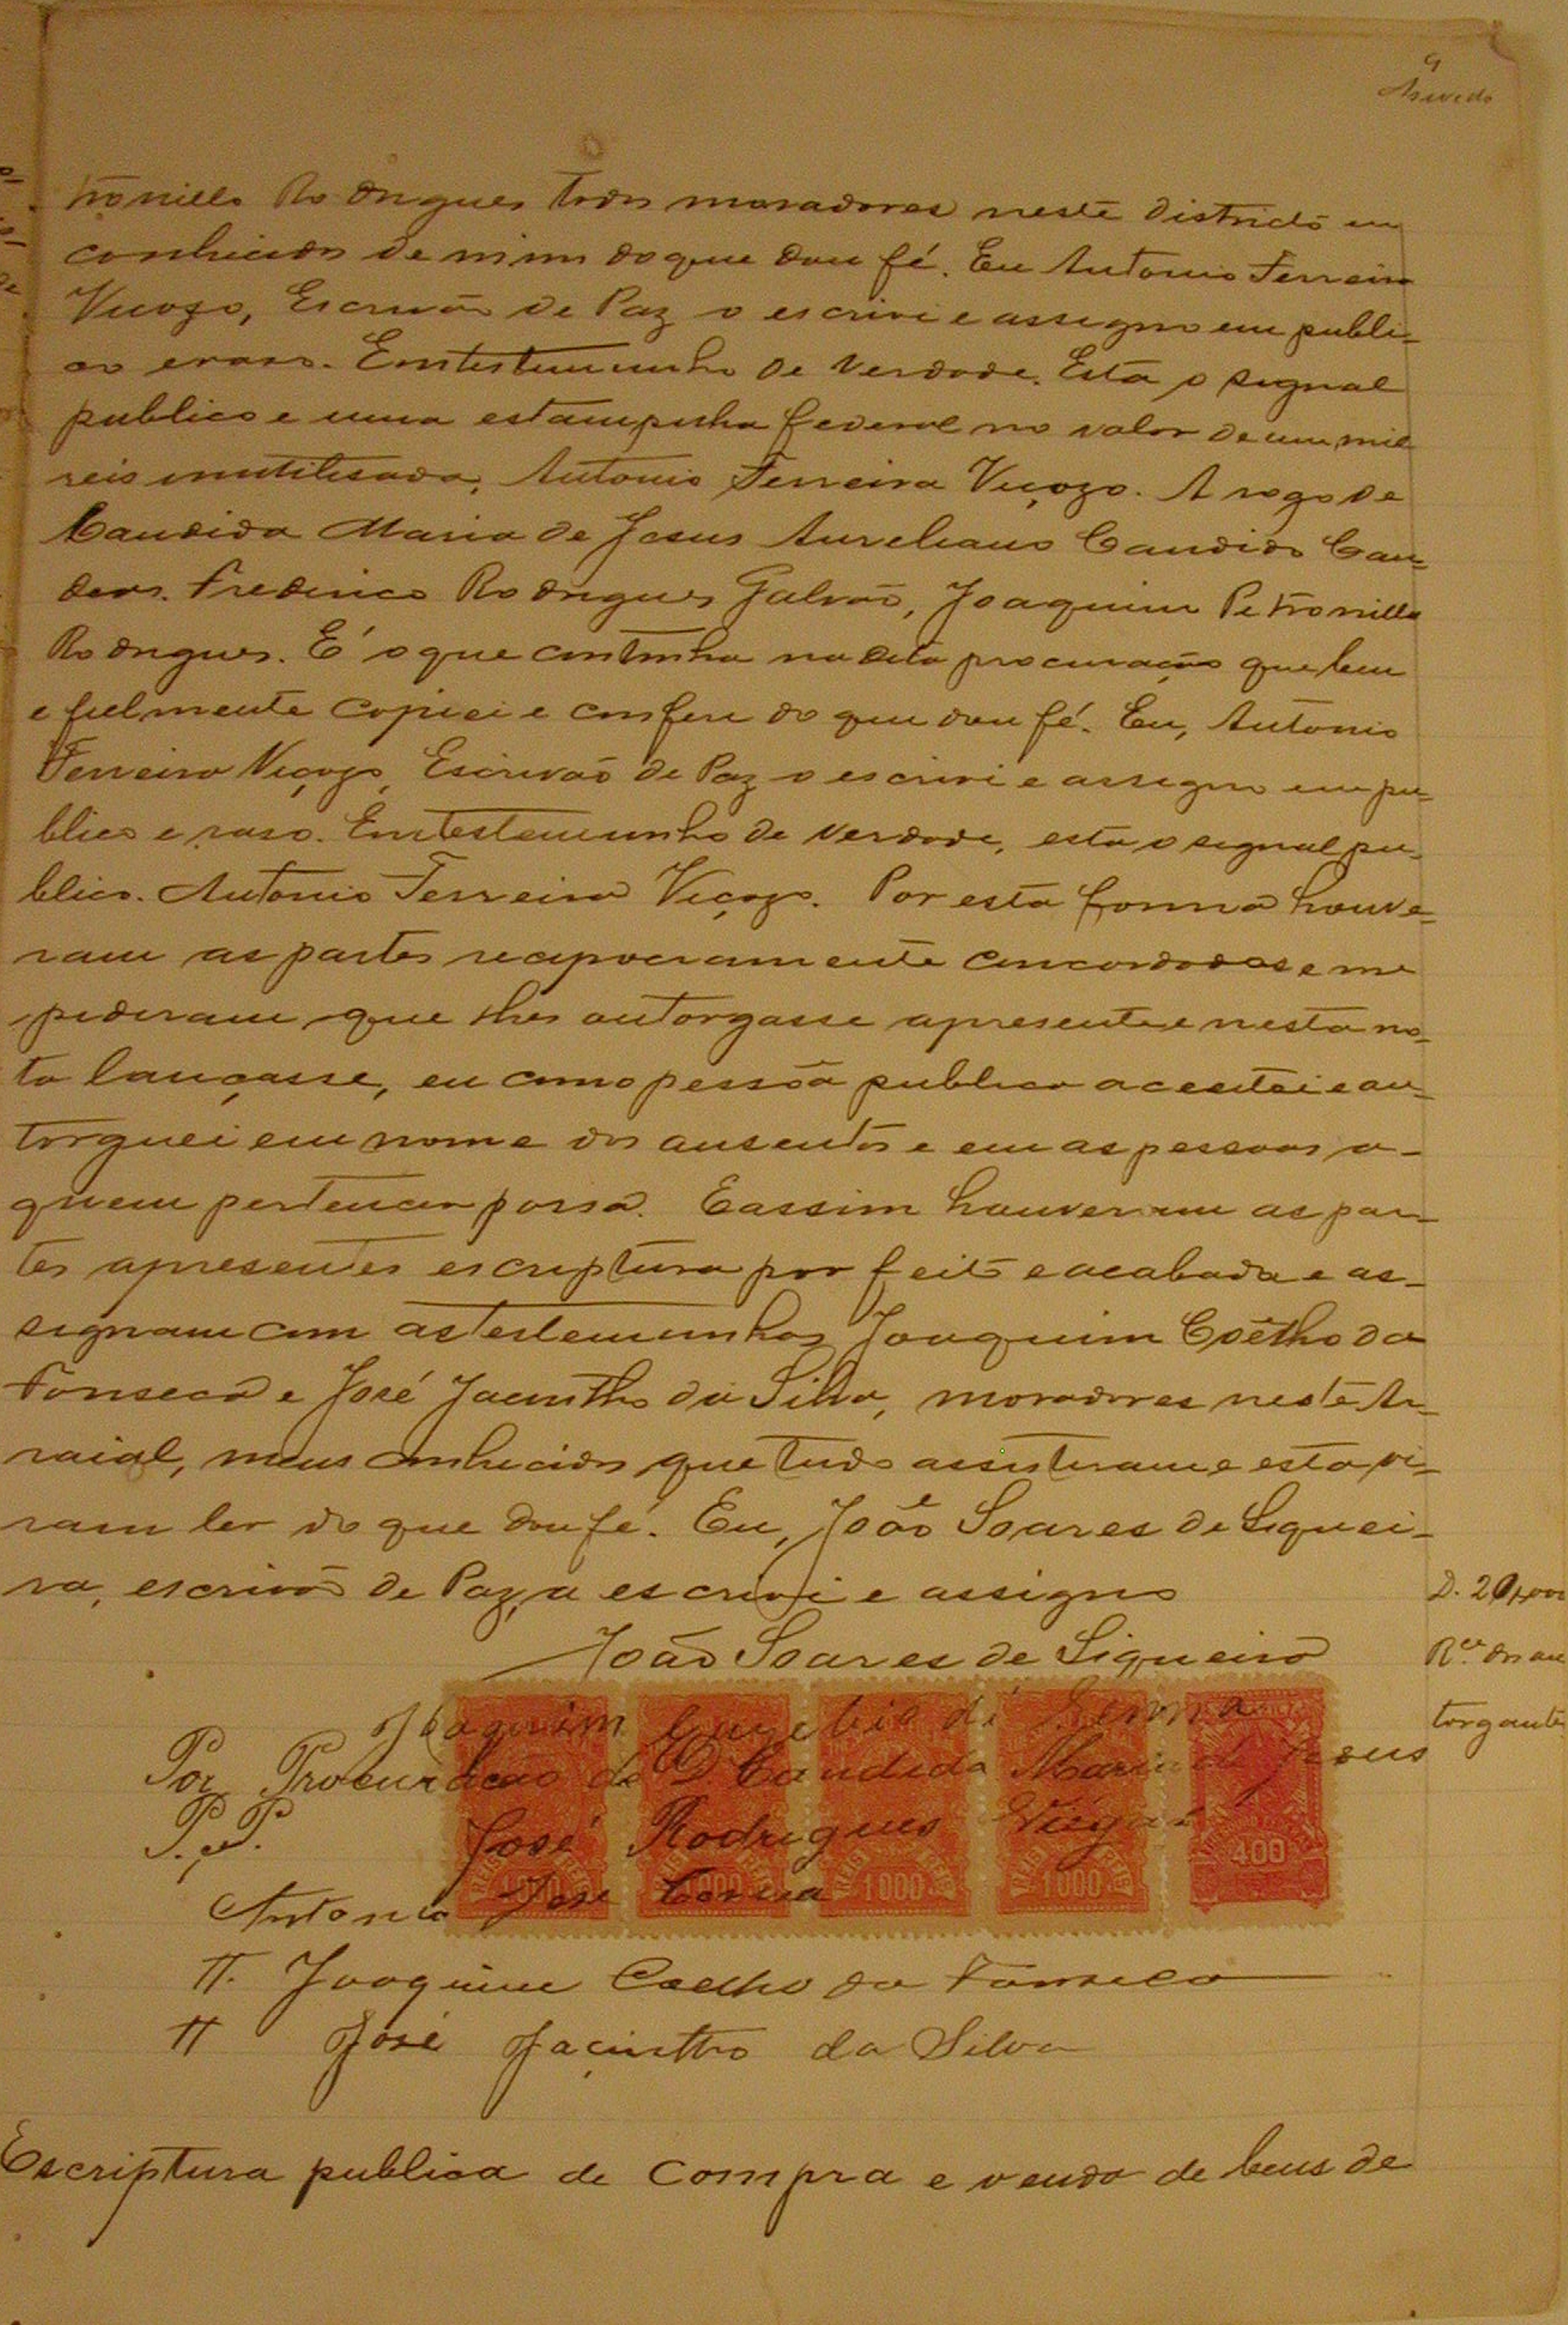 9
Azevedo
tronillo Rodrigues todos moradores neste districto em
conhecidos de mim do que dou fé. Eu Antonio Ferreira
Viçozo, Escrivão de Paz o escrivi e assigno em publi-
co e raso. Em testemunho de verdade. Está o signal
publico e uma estampilha federal no valor de um mil
reis inutilisada, Antonio Ferreira Viçozo. A rogo de
Candida Maria de Jesus Aureliano Candido Can-
deas. Frederico Rodrigues Galvão, Joaquim Petronillo
Rodrigues. É o que continha na dita procuração que bem
e fielmente copiei e conferi do que dou fé. Eu, Antonio
Ferreira Viçozo, Escrivão de Paz o escrivi e assigno em pu-
blico e raso. Em testemunho de verdade, está o signal pu-
blico. Antonio Ferreira Viçozo. Por esta forma houve-
ram as partes reciprocamente concordadas e me
pediram que lhes outorgasse apresente e nesta no-
ta lançasse, eu como pessôa publica aceeitei e au-
torguei em nome dos ausentes e em as pessoas a-
quem pertencer possa. E assim houveram as par-
tes apresentes escriptura por feita e acabada e as-
signam com as testemunhas Joaquim Coêlho da
Fonseca e José Jacintho da Silva, moradores neste Ar-
raial, meus conhecidos que tudo assisteram e esta vi-
ram ler do que dou fé. Eu, João Soares de Siquei-
ra, escrivão de Paz, a escrivi e assigno
João Soares de Siqueira
D. 20$000
R.ce dos au
torgante
Joaquim Euzebio di
Por Procuração de D. Candida Maria de Jesus
P. P. José Rodrigues Viegas
Antonio José Correa
REIS 1000 REIS
1000
REIS 1000 REIS
REIS 1000 REIS
400
TT. Joaquim Coelho da Fonseca
TT José Jaçinttro da Silva
Escriptura publica de compra e venda de bens de